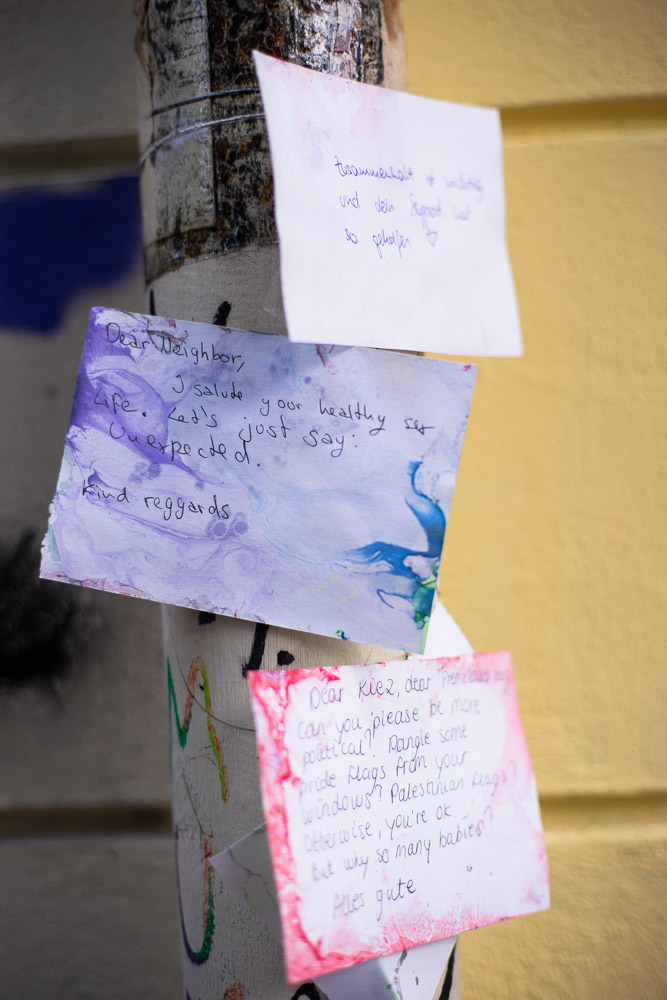 Zusammenhalt ist wichtig
und dein Support hat
so geholfen ♡
Dear Neighbor,
I salute your healthy sex
Life. Let's just say:
Unexpected.
Kind reggards
Dear Kiez, dear Prenzlauer
can you please be more
political? Dangle some
pride flags from your
windows? Palestinian flags?
Otherwise, you're ok.
But why so many babies?
Alles gute